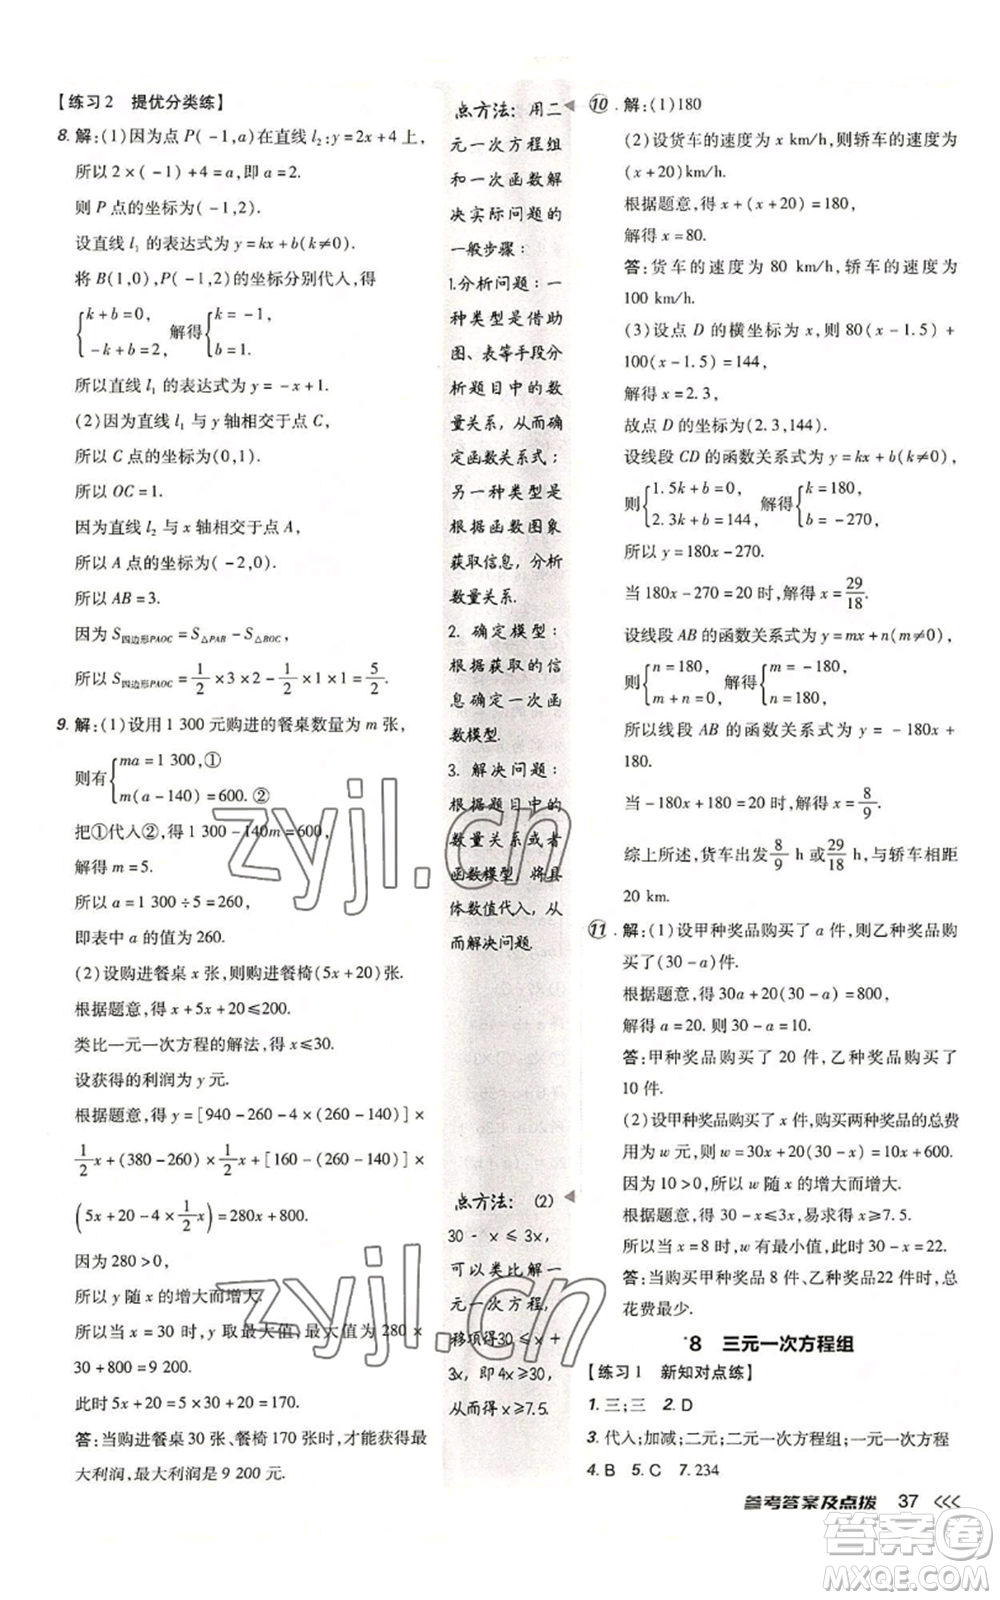 【练习2 提优分类练】
8. 解:(1)因为点 P(-1,a)在直线 l₂:y=2x+4 上,
所以 2×(-1)+4=a,即 a=2.
则 P 点的坐标为(-1,2).
设直线 l₁ 的表达式为 y=kx+b(k≠0).
将 B(1,0),P(-1,2)的坐标分别代入,得
{k+b=0, -k+b=2, 解得{k=-1, b=1.
所以直线 l₁ 的表达式为 y=-x+1.
(2)因为直线 l₁ 与 y 轴相交于点 C,
所以 C 点的坐标为(0,1).
所以 OC=1.
因为直线 l₂ 与 x 轴相交于点 A,
所以 A 点的坐标为(-2,0).
所以 AB=3.
因为 S四边形PAOC=S△PAB-S△BOC,
所以 S四边形PAOC=1/2×3×2-1/2×1×1=5/2.
9. 解:(1)设用 1 300 元购进的餐桌数量为 m 张,
则有{ma=1 300,① m(a-140)=600.②
把①代入②,得 1 300-140m=600,
解得 m=5.
所以 a=1 300÷5=260,
即表中 a 的值为 260.
(2)设购进餐桌 x 张,则购进餐椅(5x+20)张.
根据题意,得 x+5x+20≤200.
类比一元一次方程的解法,得 x≤30.
设获得的利润为 y 元.
根据题意,得 y=[940-260-4×(260-140)]×
1/2x+(380-260)×1/2x+[160-(260-140)]×
(5x+20-4×1/2x)=280x+800.
因为 280>0,
所以 y 随 x 的增大而增大.
所以当 x=30 时,y 取最大值,最大值为 280×
30+800=9 200.
此时 5x+20=5×30+20=170.
答:当购进餐桌 30 张、餐椅 170 张时,才能获得最
大利润,最大利润是 9 200 元.
点方法:用二
元一次方程组
和一次函数解
决实际问题的
一般步骤:
1.分析问题:一
种类型是借助
图、表等手段分
析题目中的数
量关系,从而确
定函数关系式;
另一种类型是
根据函数图象
获取信息,分析
数量关系.
2. 确定模型:
根据获取的信
息确定一次函
数模型.
3. 解决问题:
根据题目中的
数量关系或者
函数模型,将具
体数值代入,从
而解决问题.
点方法:(2)
30-x≤3x,
可以类比解一
元一次方程,
移项得30≤x+
3x,即4x≥30,
从而得x≥7.5.
10. 解:(1)180
(2)设货车的速度为 x km/h,则轿车的速度为
(x+20)km/h.
根据题意,得 x+(x+20)=180,
解得 x=80.
答:货车的速度为 80 km/h,轿车的速度为
100 km/h.
(3)设点 D 的横坐标为 x,则 80(x-1.5)+
100(x-1.5)=144,
解得 x=2.3,
故点 D 的坐标为(2.3,144).
设线段 CD 的函数关系式为 y=kx+b(k≠0),
则{1.5k+b=0, 2.3k+b=144, 解得{k=180, b=-270,
所以 y=180x-270.
当 180x-270=20 时,解得 x=29/18.
设线段 AB 的函数关系式为 y=mx+n(m≠0),
则{n=180, m+n=0, 解得{m=-180, n=180,
所以线段 AB 的函数关系式为 y=-180x+
180.
当-180x+180=20 时,解得 x=8/9.
综上所述,货车出发8/9 h 或29/18 h,与轿车相距
20 km.
11. 解:(1)设甲种奖品购买了 a 件,则乙种奖品购
买了(30-a)件.
根据题意,得 30a+20(30-a)=800,
解得 a=20. 则 30-a=10.
答:甲种奖品购买了 20 件,乙种奖品购买了
10 件.
(2)设甲种奖品购买了 x 件,购买两种奖品的总费
用为 w 元,则 w=30x+20(30-x)=10x+600.
因为 10>0,所以 w 随 x 的增大而增大.
因为 30-x≤3x,易求得 x≥7.5.
所以当 x=8 时,w 有最小值,此时 30-x=22.
答:当购买甲种奖品 8 件、乙种奖品22 件时,总
花费最少.
*8 三元一次方程组
【练习1 新知对点练】
1. 三;三 2. D
3. 代入;加减;二元;二元一次方程组;一元一次方程
4. B 5. C 7. 234
参考答案及点拨 37
zyjl.cn
zyjl.cn
答案圈
MXQE.COM